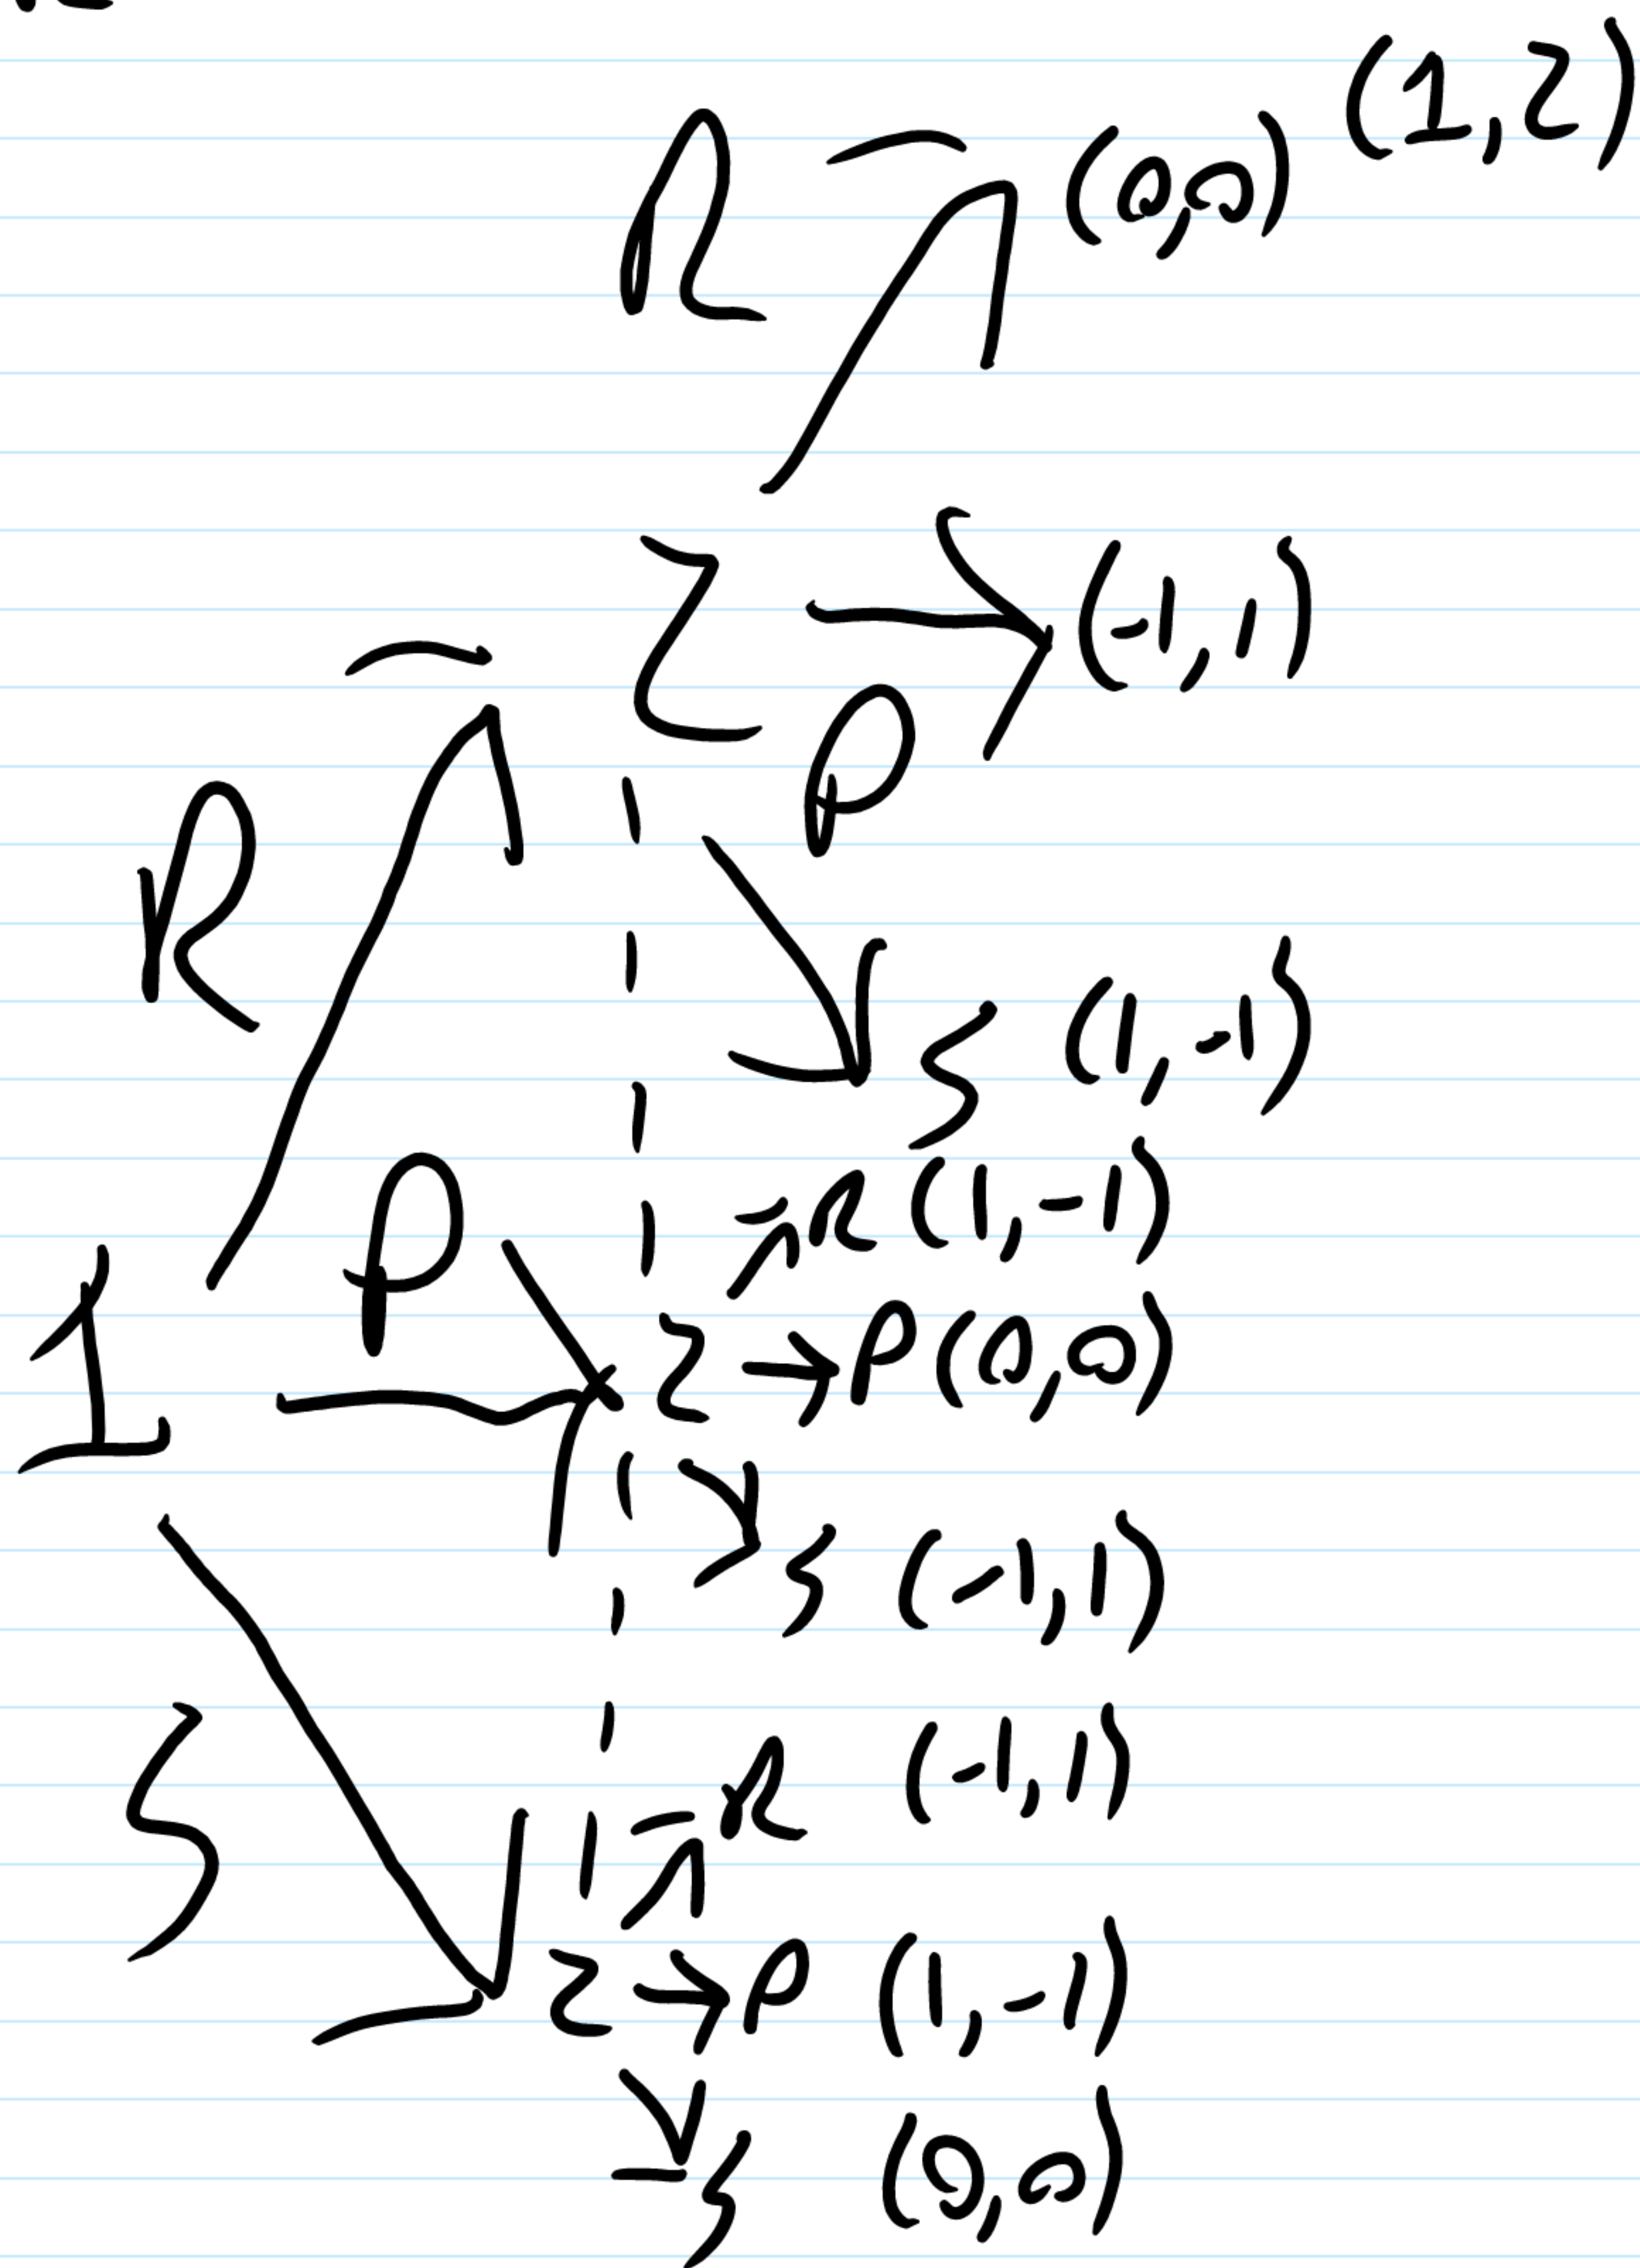 (1,2)
R (0,0)
2 (-1,1)
P
R
S (1,-1)
R (1,-1)
P
1
2 P (0,0)
S (-1,1)
R (-1,1)
S
2 P (1,-1)
S (0,0)